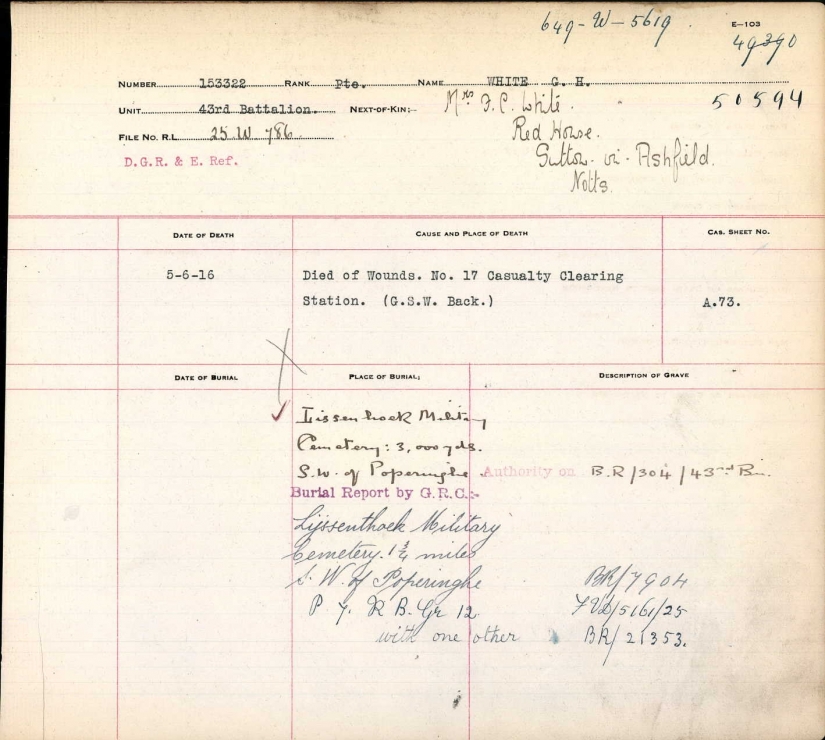 649-W-5619.
E-103
49390
NUMBER 153322 RANK Pte. NAME WHITE G. H.
50594
UNIT 43rd Battalion. NEXT-OF-KIN:- Mrs F.C. White.
FILE NO. R.L. 25 W 786 Red House.
D.G.R. & E. Ref. Sutton. in. Ashfield.
Notts.
DATE OF DEATH CAUSE AND PLACE OF DEATH CAS. SHEET NO.
5-6-16 Died of Wounds. No. 17 Casualty Clearing
Station. (G.S.W. Back.) A.73.
DATE OF BURIAL PLACE OF BURIAL; DESCRIPTION OF GRAVE
Lissenhoek Military
Cemetery: 3,000 yds.
S.W. of Poperinghe Authority on B.R/304/43rd Bn.
Burial Report by G.R.C:-
Lijssenthoek Military
Cemetery. 1 3/4 miles
S. W. of Poperinghe BR/7904
P 7. R B. Gr 12 /5161/25
with one other BR/21353.